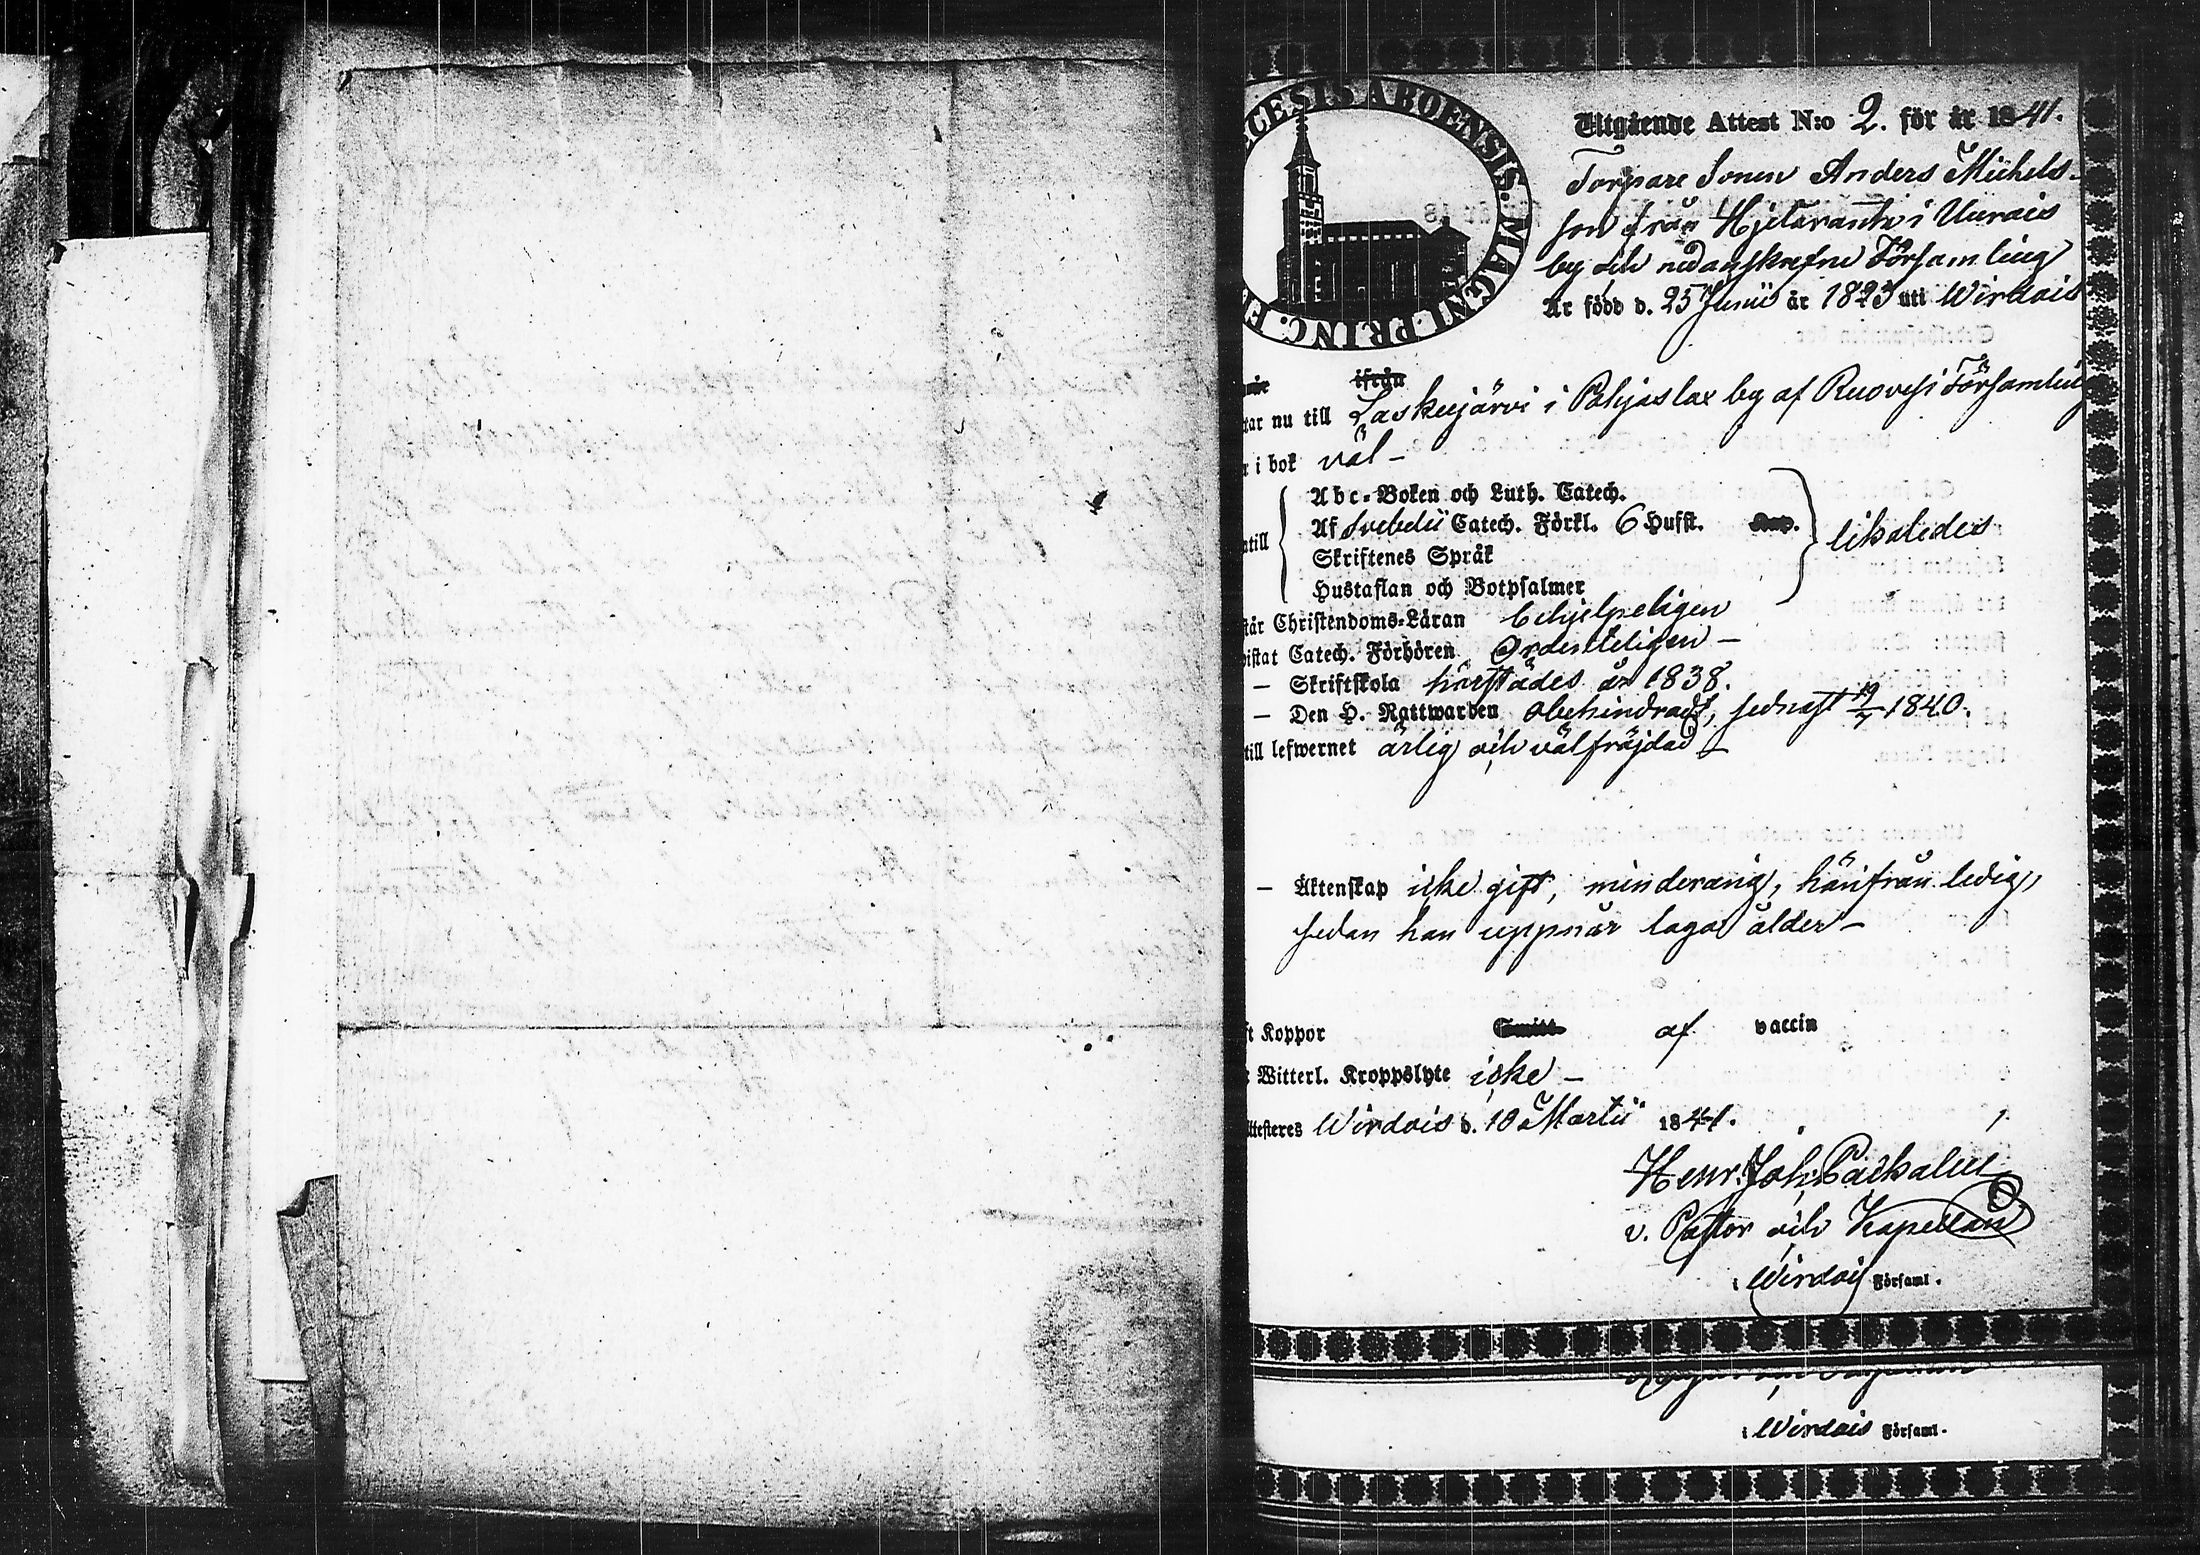 CESIS ABOENSIS. MAGNI. PRINC.
Utgående Attest N:o 2. för år 1841.
Torpare Sonen Anders Michels-
son från Hjetaranta i Uurais
by och nedanskrefne Församling
Är född d. 25 Junii år 1823 uti Wirdois
ifrån
tar nu till Laskujärvi i Pohjaslax by af Ruovesi Församling
r i bok väl –
Abc-Boken och Luth. Catech.
Af Svebelii Catech. Förkl. 6 Hufst. Kap.
ntill
Skriftenes Språk
Hustaflan och Botpsalmer
likaledes
står Christendoms-Läran behjelpeligen
vistat Catech. Förhören Ordenteligen –
– Skriftskola härstädes år 1838.
– Den H. Nattwarden obehindradt, sednast 19/7 1840.
till lefwernet ärlig och välfräjdad –
– Äktenskap icke gift, minderårig, härifrån ledig,
sedan han uppnår laga ålder –
ft Koppor Smitt af vaccin
r Witterl. Kroppslyte icke –
Attesteres Wirdois d. 10 Martii 1841.
Henr. Joh. Packalen
v. Pastor och Kapellan
i Wirdois Församl.
i Wirdois Församl.